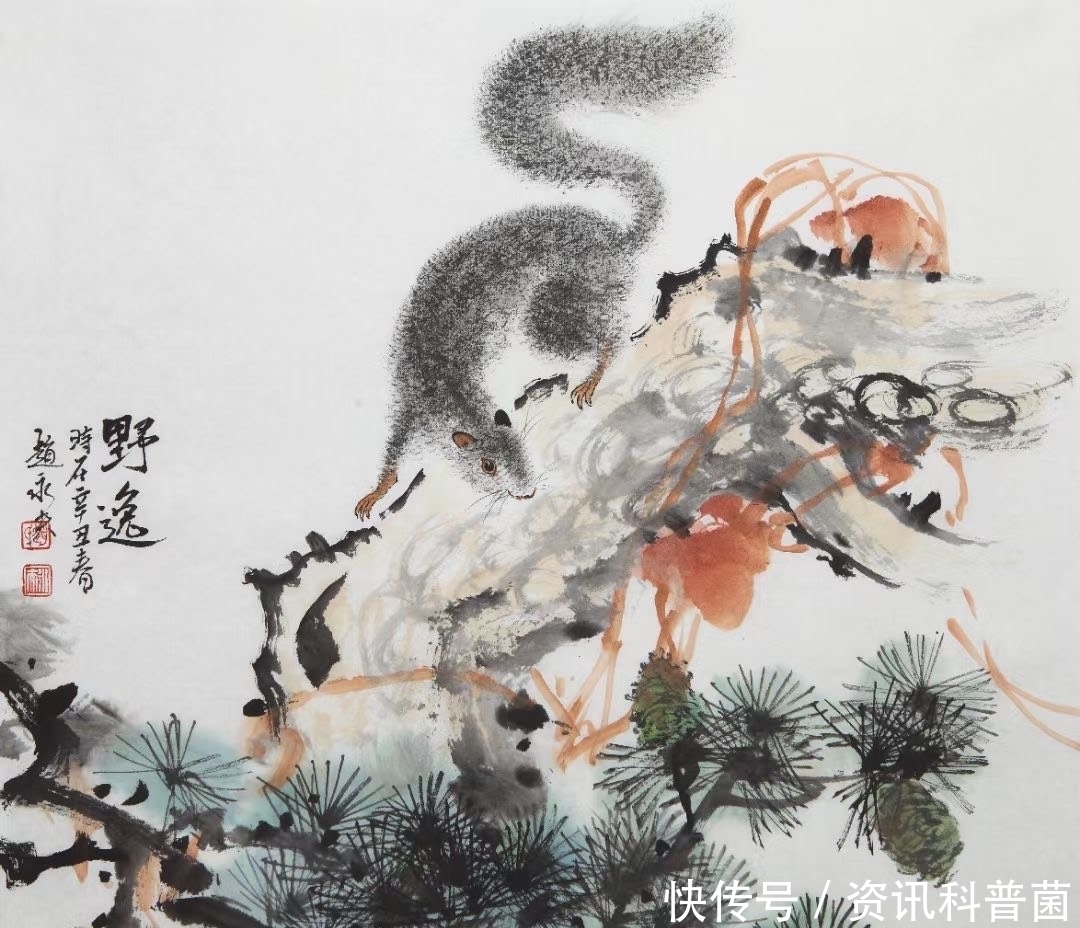 野逸
時在辛丑春
趙永
快传号 / 资讯科普菌